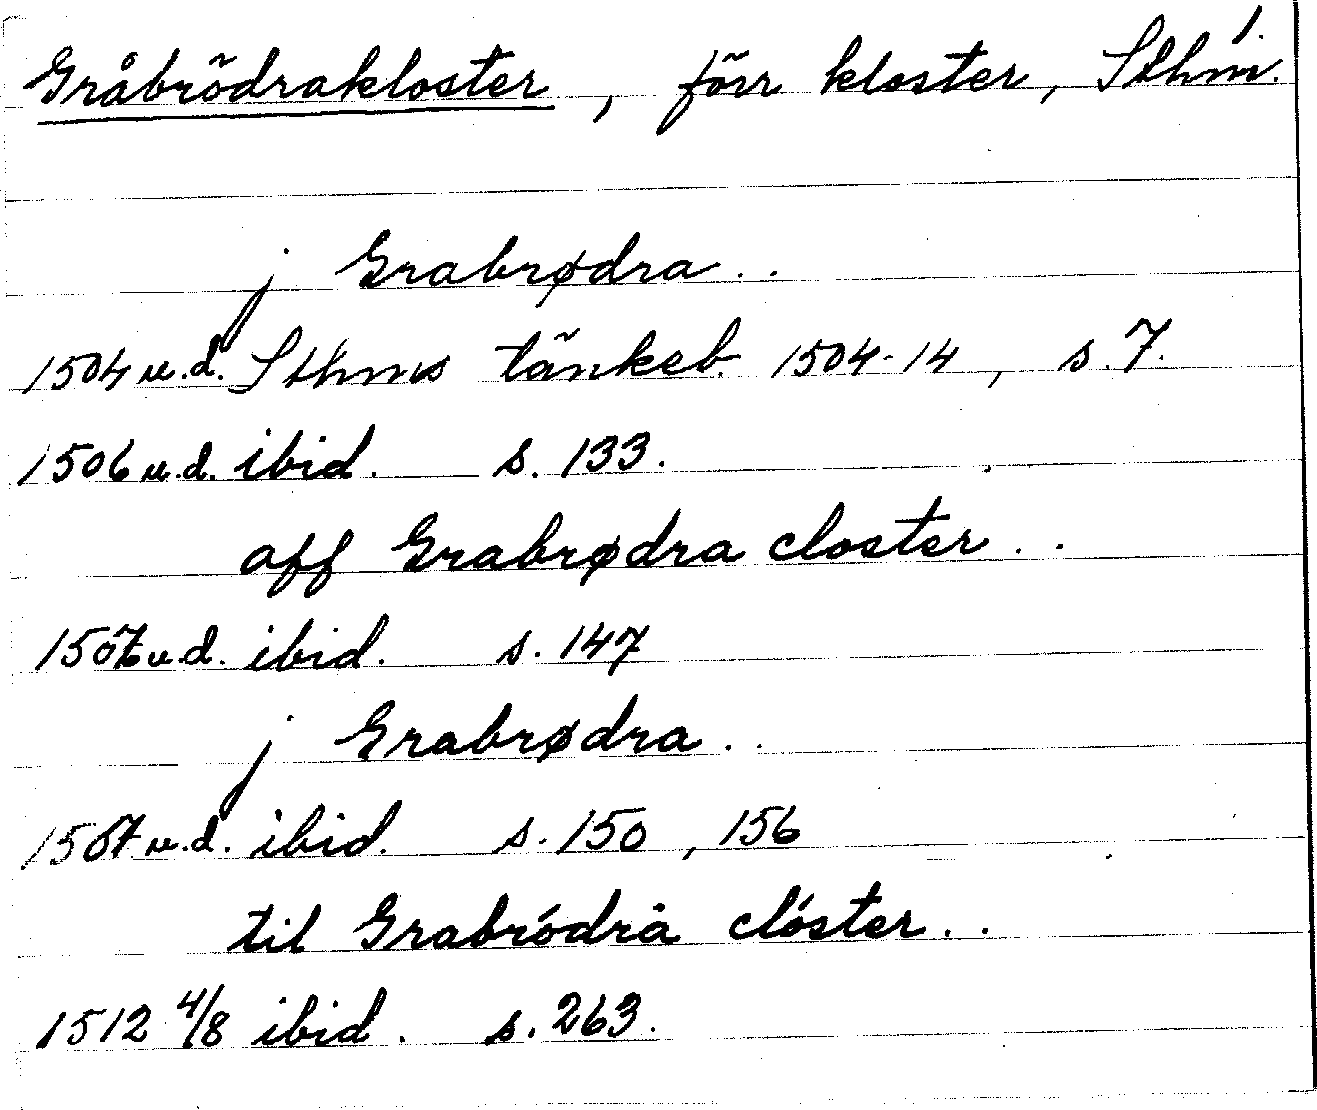 1.
Gråbrödrakloster, förr kloster, Sthm.
j Grabrødra..
1504 u.d. Sthms tänkeb. 1504-14, s. 7.
1506 u.d. ibid. s. 133.
aff Grabrødra closter..
1507 u.d. ibid. s. 147
j Grabrødra..
1507 u.d. ibid. s. 150, 156
til Grabródra clóster..
1512 4/8 ibid. s. 263.